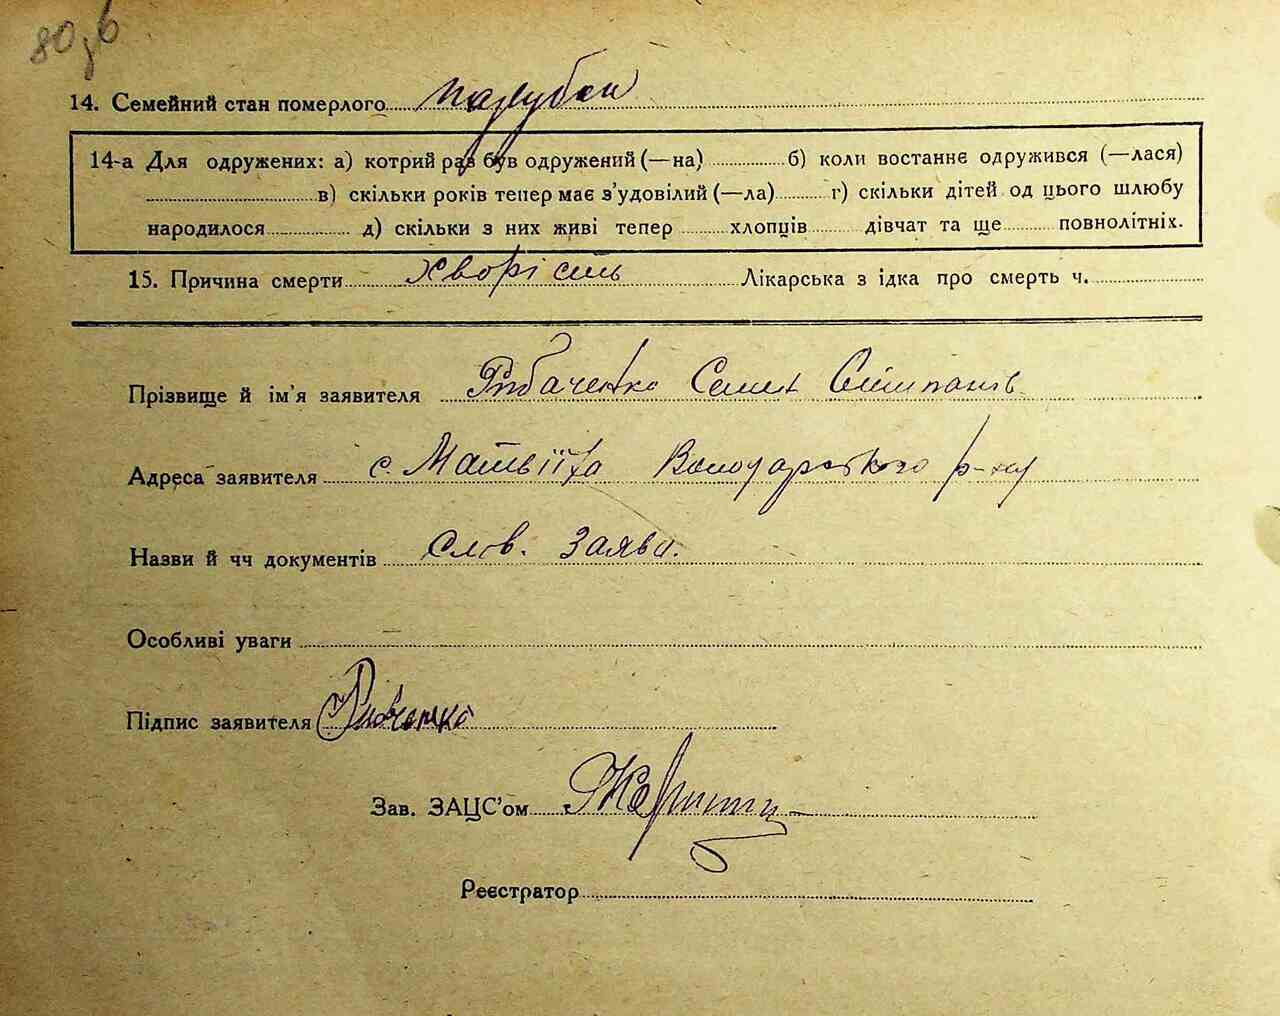 80 зв
14. Семейний стан померлого парубок
14-а Для одружених: а) котрий раз був одружений (—на) б) коли востаннє одружився (—лася)
в) скільки років тепер має з'удовілий (—ла) г) скільки дітей од цього шлюбу
народилося д) скільки з них живі тепер хлопців дівчат та ще повнолітніх.
15. Причина смерти хворість Лікарська з ідка про смерть ч.
Прізвище й ім'я заявителя Рибаченко Семен Степанів
Адреса заявителя с. Матвіїха Володарського р-ну
Назви й чч документів слов. заява.
Особливі уваги
Підпис заявителя
Зав. ЗАЦС'ом
Реєстратор